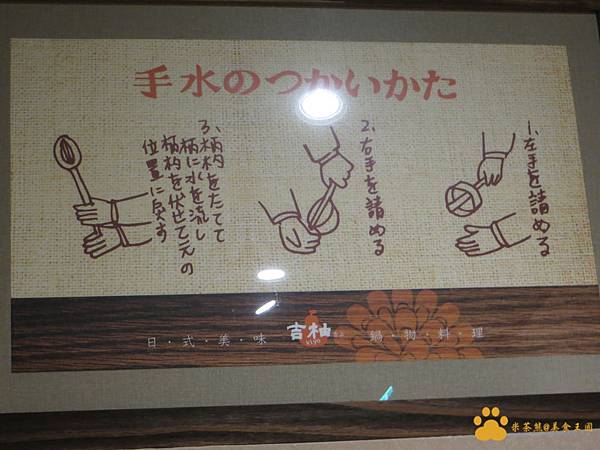 手水のつかいかた
1.左手を請める
2.右手を請める
3.柄杓をたてて
柄に水を流し
柄杓を伏せて元の
位置に戻す
吉柚
KIYO
日・式・美・味
鍋・物・料・理
米茶熊の美食王國